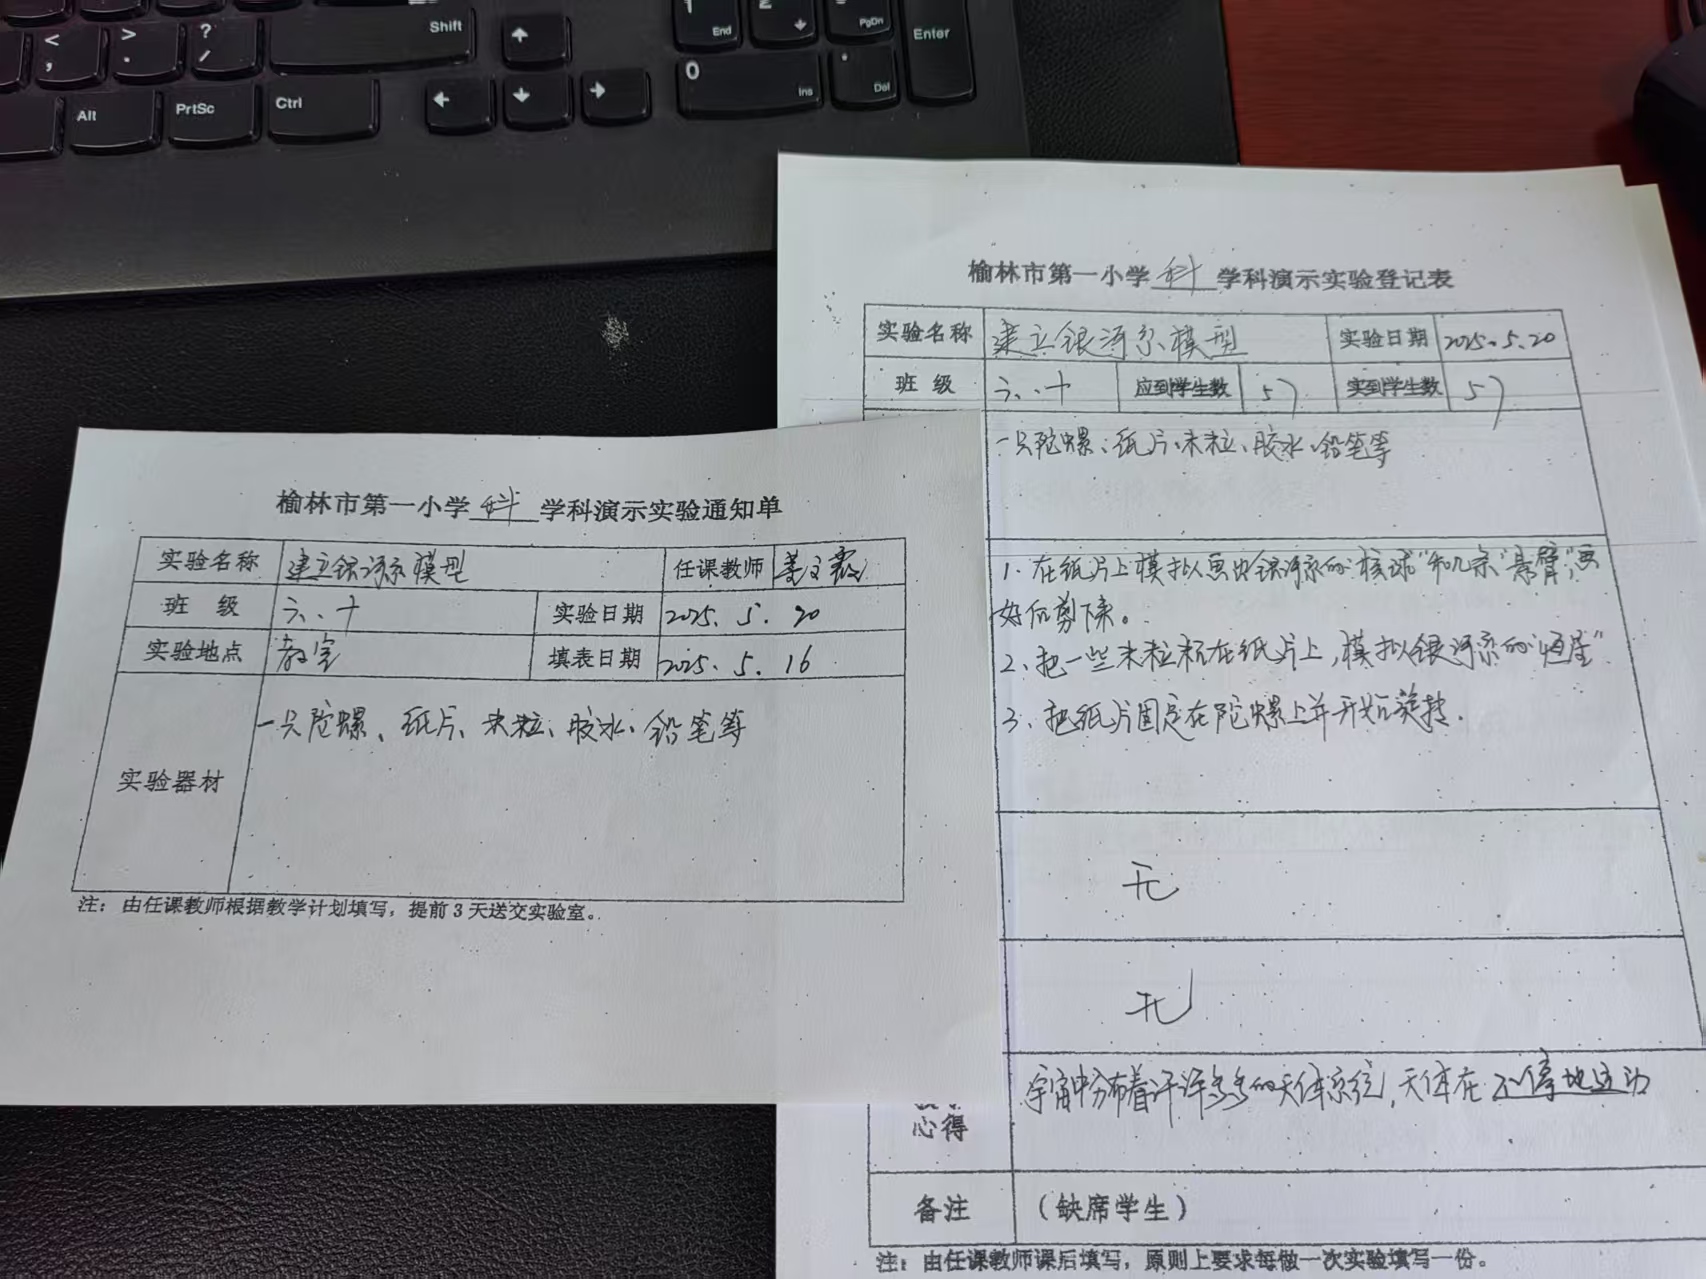 Shift
End
PgDn
Enter
Alt
PrtSc
Ctrl
0
Ins
Del
榆林市第一小学 科 学科演示实验通知单
实验名称 建立银河系模型 任课教师
班 级 六、十 实验日期 2025.5.20
实验地点 教室 填表日期 2025.5.16
实验器材 一只陀螺、纸片、米粒、胶水、铅笔等
注：由任课教师根据教学计划填写，提前3天送交实验室。
榆林市第一小学 科 学科演示实验登记表
实验名称 建立银河系模型 实验日期 2025.5.20
班 级 六、十 应到学生数 57 实到学生数 57
一只陀螺、纸片、米粒、胶水、铅笔等
1. 在纸片上模拟画出银河系的“核球”和几条“悬臂”，画
好后剪下来。
2. 把一些米粒粘在纸片上，模拟银河系的“恒星”
3. 把纸片固定在陀螺上并开始旋转.
无
无
心得 宇宙中分布着许许多多的天体系统，天体在不停地运动
备注 （缺席学生）
注：由任课教师课后填写，原则上要求每做一次实验填写一份。